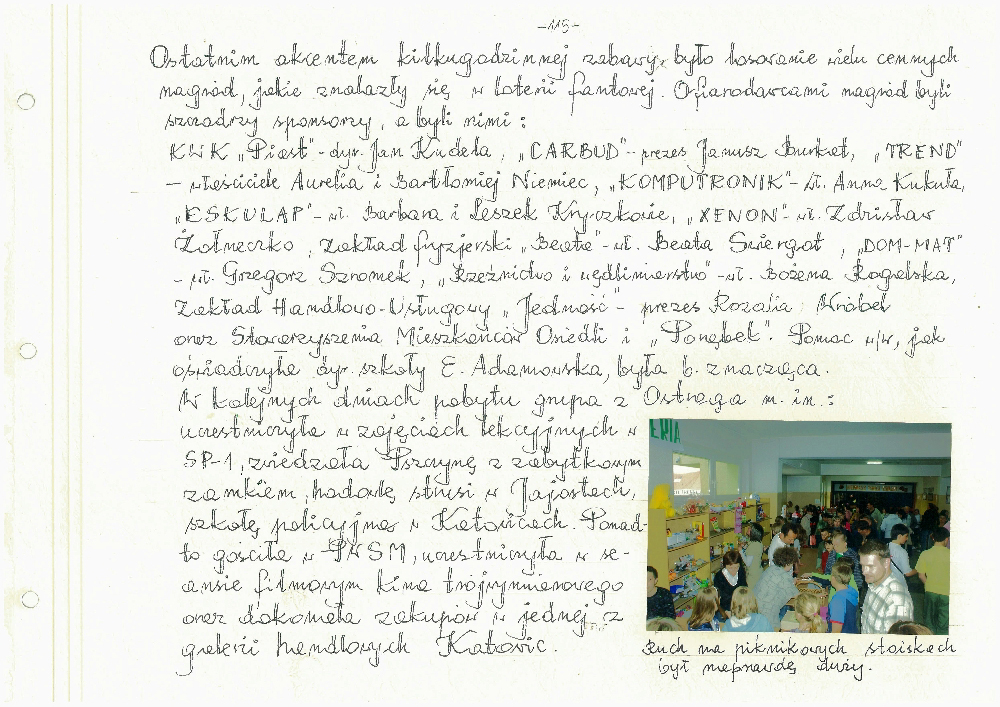 -115-
Ostatnim akcentem kilkugodzinnej zabawy było losowanie wielu cennych
nagród, jakie znalazły się w loterii fantowej. Ofiarodawcami nagród byli
szczodrzy sponsorzy, a byli nimi:
KWK „Piast" - dyr. Jan Kudela, „CARBUD" - prezes Janusz Burket, „TREND"
- właściciele Aurelia i Bartłomiej Niemiec, „KOMPUTRONIK" - wł. Anna Kukuła,
„ESKULAP" - wł. Barbara i Leszek Kryczkowie, „XENON" - wł. Zdzisław
Żołneczko, zakład fryzjerski „Beata" - wł. Beata Świergot, „DOM-MAT"
- wł. Grzegorz Szromek, „Rzeźnictwo i wędliniarstwo" - wł. Bożena Rogalska,
Zakład Handlowo-Usługowy „Jedność" - prezes Rozalia Wróbel
oraz Stowarzyszenia Mieszkańców Osiedli i „Porąbek". Pomoc w/w, jak
oświadczyła dyr. szkoły E. Adamowska, była b. znacząca.
W kolejnych dniach pobytu grupa z Ostroga m. in.:
uczestniczyła w zajęciach lekcyjnych w
SP-1, zwiedzała Pszczynę z zabytkowym
zamkiem, hodowlę strusi w Jajostach,
szkołę policyjną w Katowicach. Ponad-
to gościła w PWSM, uczestniczyła w se-
ansie filmowym kina trójwymiarowego
oraz dokonała zakupów w jednej z
galerii handlowych Katowic.
ERIA
Ruch na piknikowych stoiskach
był naprawdę duży.